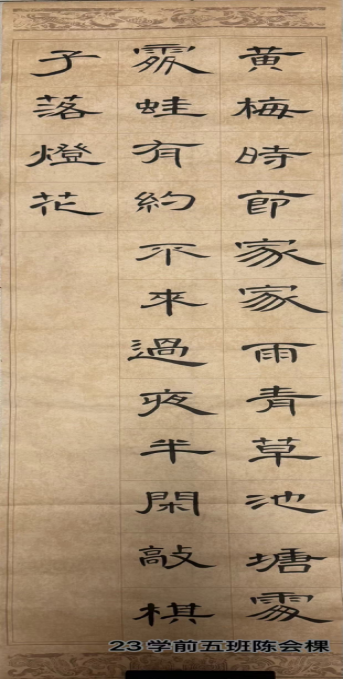 黄梅時節家家雨青草池塘處
處蛙有約不來過夜半閑敲棋
子落燈花
23学前五班陈会棵